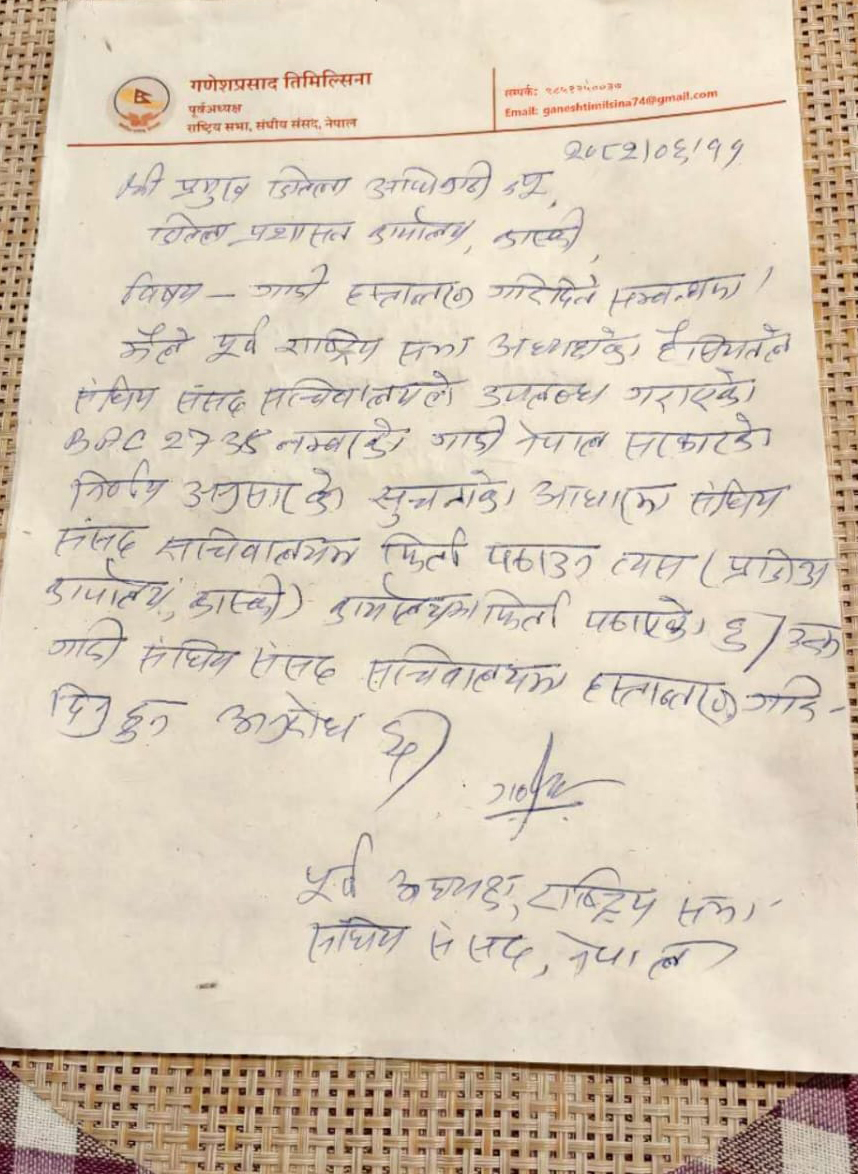 गणेशप्रसाद तिमिल्सिना
पूर्वअध्यक्ष
राष्ट्रिय सभा, संघीय संसद, नेपाल
सम्पर्क: ९८५१२५००३७
Email: ganeshtimilsina74@gmail.com
२०८२।०६।११
श्री प्रमुख जिल्ला अधिकारी ज्यू,
जिल्ला प्रशासन कार्यालय, कास्की,
विषय – गाडी हस्तान्तरण गरिदिने सम्बन्धमा।
मैले पूर्व राष्ट्रिय सभा अध्यक्षको हैसियतले
संघिय संसद सचिवालयले उपलब्ध गराएको
2738 नम्बरको गाडी नेपाल सरकारको
निर्णय अनुसारको सुचनाको आधारमा संघिय
संसद सचिवालयमा फिर्ता पठाउन त्यस (प्रजिअ
कार्यालय, कास्की) कार्यालयमा फिर्ता पठाएको छु। उक्त
गाडी संघिय संसद सचिवालयमा हस्तान्तरण गरि-
दिनु हुन अनुरोध छ।
पूर्व अध्यक्ष, राष्ट्रिय सभा
संघिय संसद, नेपाल